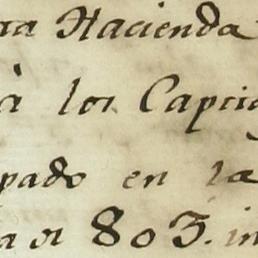 ra Hacienda
à los Capcio
pado en la
a si 803. in